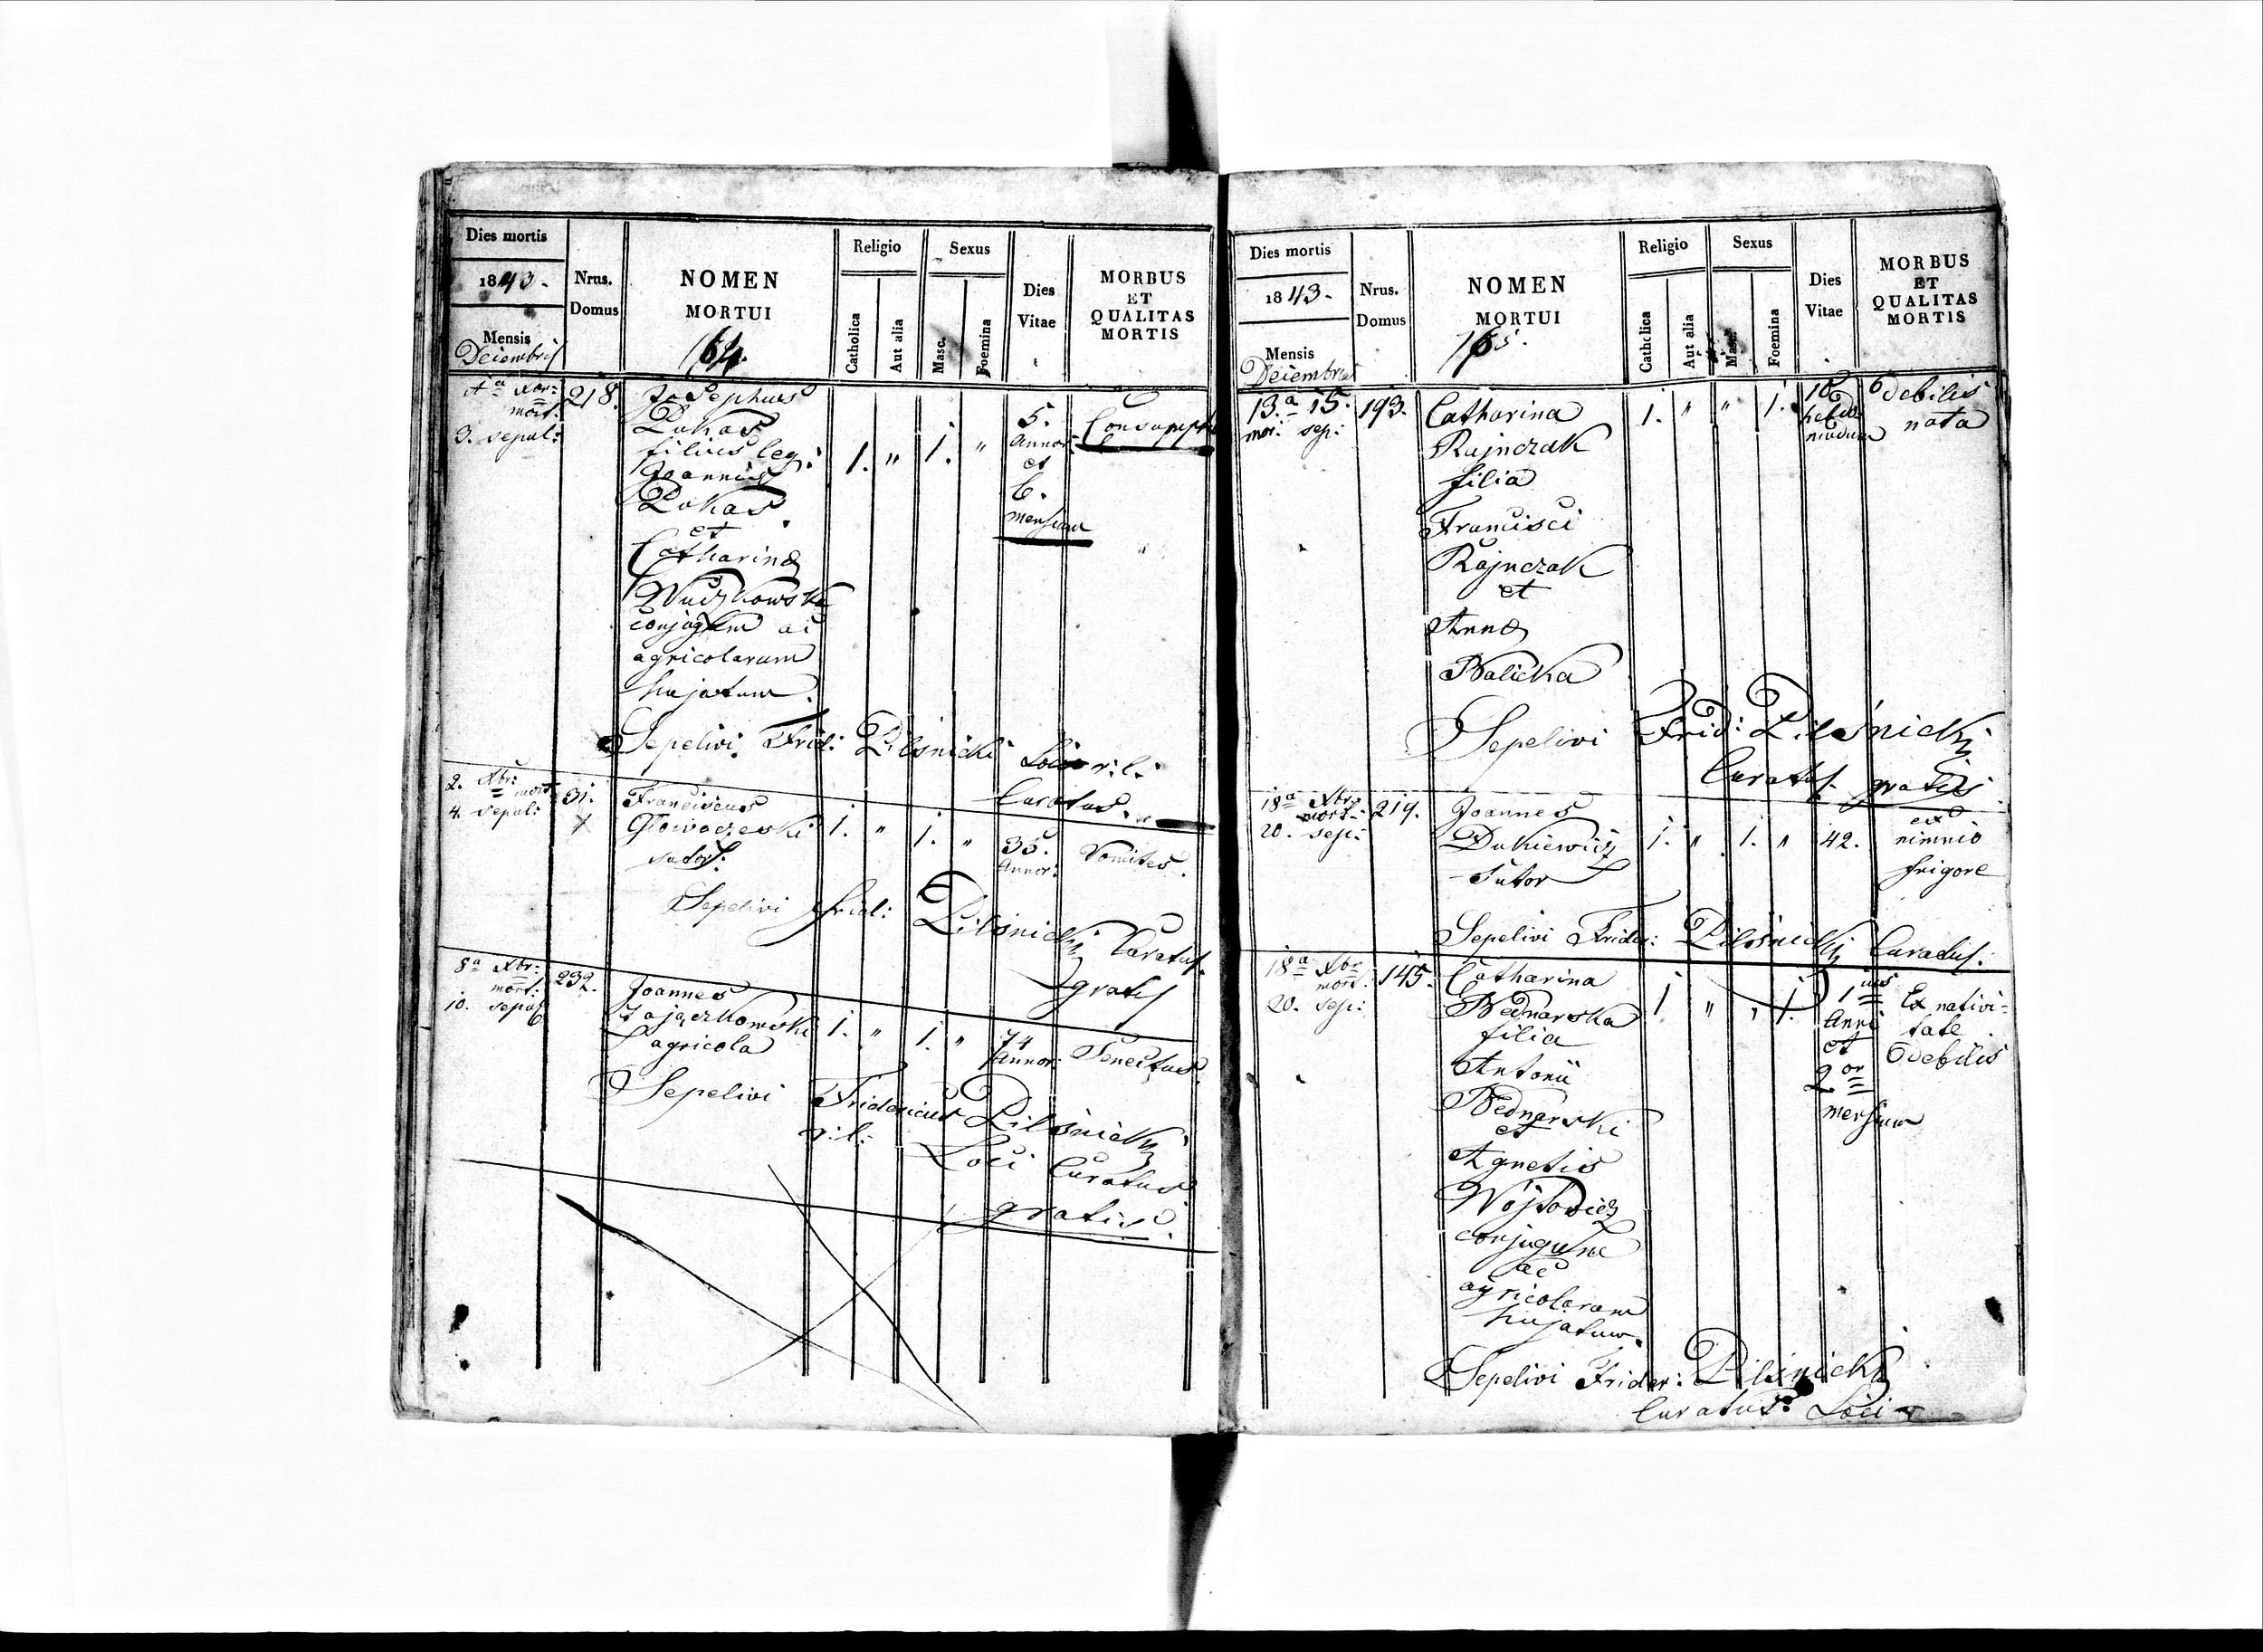 Dies mortis
1843.
Mensis
Decembris
Nrus.
Domus
NOMEN
MORTUI
164.
Religio
Catholica
Aut alia
Sexus
Masc.
Foemina
Dies
Vitae
MORBUS
ET
QUALITAS
MORTIS
1a Xbr: 218. Josephus
mort. Lukas
3. sepul: filius leg: 1. " 1. " 5. Consumptio
Joannis Annor:
Lukas et
et 6.
Catharina mensium
conjugum ac
agricolarum
hujatum.
Sepelivi Frid: Pilśnicki Loci r. l.
Curatus.
2. Xbr: mort. 31. Franciscus
4. sepul: Głowaczeski 1. " 1. " 35. Vomitus.
sutor. Annor:
Sepelivi Frid: Pilśnicki Curatus.
gratis
8a Xbr: 232. Joannes
mort: Zajączkowski 1. " 1. " 74 Senectus.
10. sepul agricola Annor:
Sepelivi Fridericus Pilśnicki
r. l. Loci Curatus
gratis.
Dies mortis
1843.
Mensis
Decembris
Nrus.
Domus
NOMEN
MORTUI
165.
Religio
Catholica
Aut alia
Sexus
Masc.
Foemina
Dies
Vitae
MORBUS
ET
QUALITAS
MORTIS
13.a 15. 193. Catharina 1. " " 1. debilis
mor. sep: Rajnczak nata
filia
Francisci
Rajnczak
et
Anna
Balicka
Sepelivi Frid: Pilśnicki
Curatus gratis
18a Xbr: 219. Joannes ex
mort. Dukiewicz 1. " 1. " 42. nimio
20. sep: Sutor frigore
Sepelivi Frider: Pilśnicki Curatus.
18a Xbr 145. Catharina 1 " " 1. 1ius Ex nativi-
mort. Bednarska Anni tate
20. sep: filia et debilis
Antonii 2or
Bednarski mensium
et
Agnetis
Wojtowicz
conjugum
ac
agricolarum
hujatum.
Sepelivi Frider: Pilśnicki
Curatus Loci